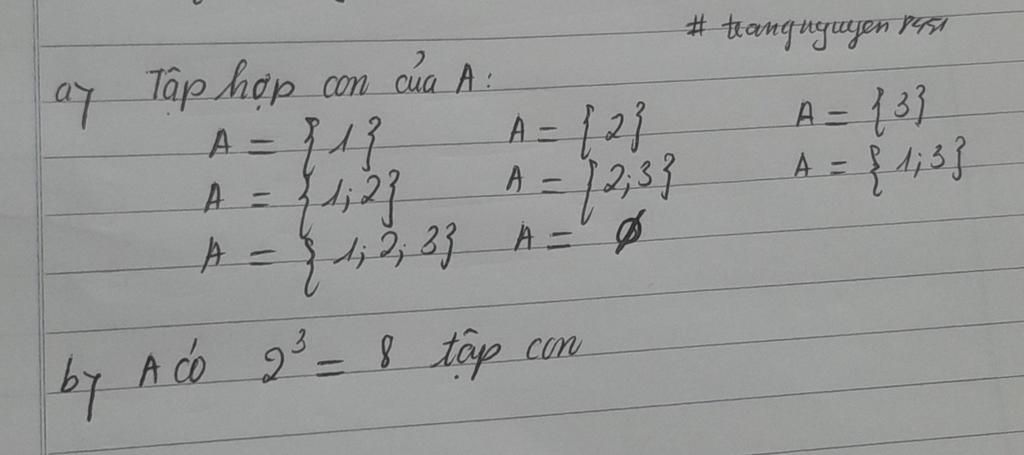 # trangnguyen1451
a, Tập hợp con của A:
A = {1} A = {2} A = {3}
A = {1; 2} A = {2; 3} A = {1; 3}
A = {1; 2; 3} A = ∅
b, A có 2³ = 8 tập con